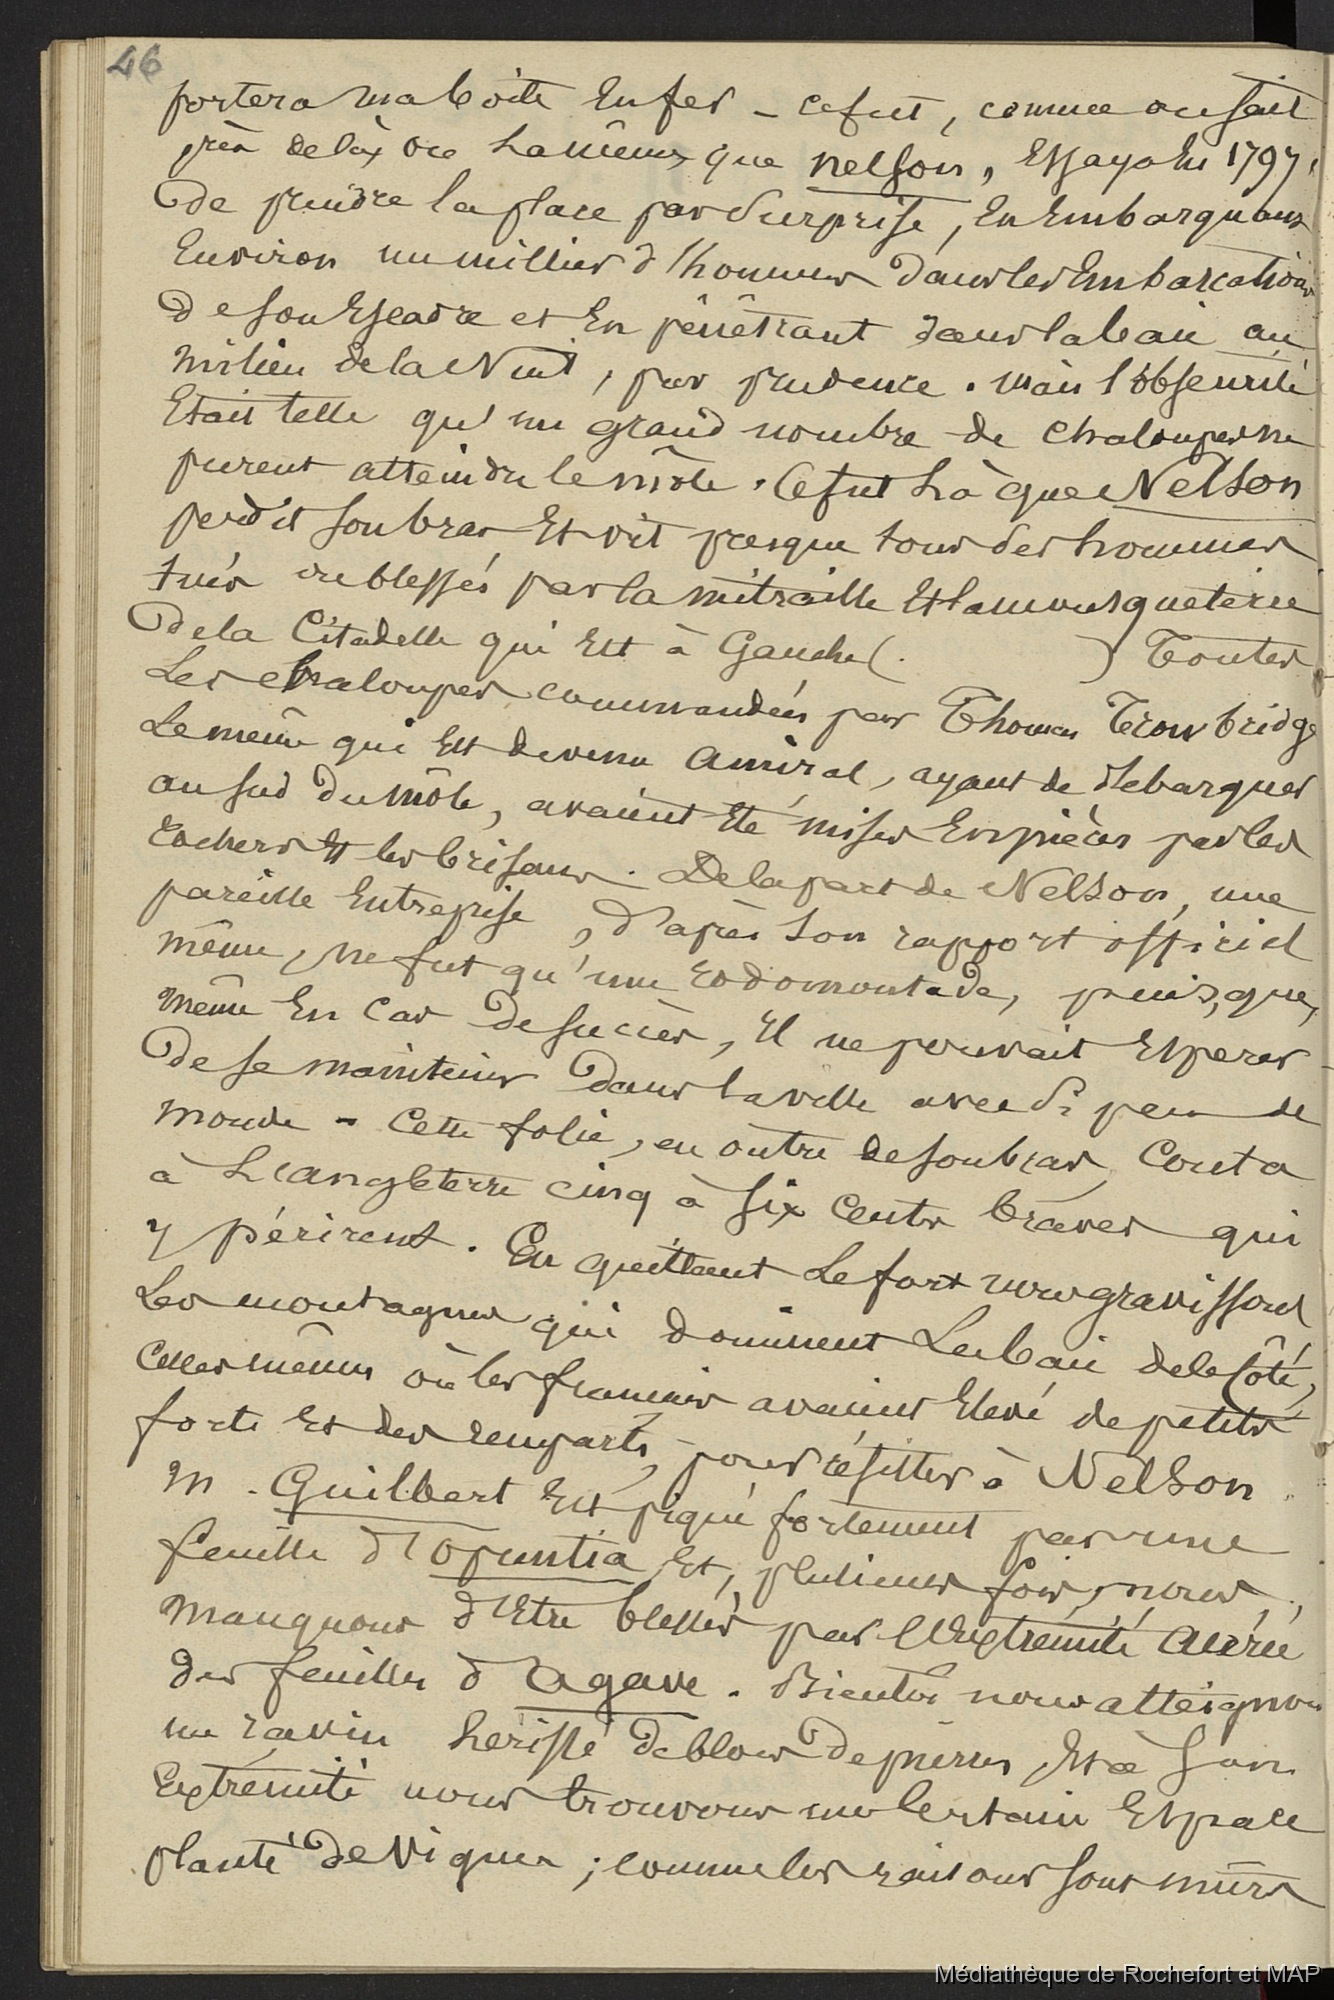 46
portera ma boîte en fer - ce fut, comme on sait
près de là, ou là même, que Nelson, essaya en 1797,
de prendre la place par surprise, en embarquant
environ un millier d'hommes dans les embarcations
de son escadre et en pénétrant dans la baie au
milieu de la nuit, par prudence. mais l'obscurité
était telle qu'un grand nombre de chaloupes ne
purent atteindre le môle. Ce fut là que Nelson
perdit son bras et vit presque tous ses hommes
tués ou blessés par la mitraille et la mousqueterie
de la Citadelle qui est à Gauche ( ) Toutes
Les chaloupes commandées par Thomas Trowbridge
Le même qui est devenu amiral, ayant de débarquer
au sud du môle, avaient été mises en pièces par les
rochers et les brisans. De la part de Nelson, une
pareille entreprise, d'après son rapport officiel
même, ne fut qu'une rodomontade, puis,que,
même en cas de succès, il ne pouvait espérer
de se maintenir dans la ville avec si peu de
monde - Cette folie, en outre de son bras, couta
à L'angleterre cinq à six cents braves qui
y périrent. En quittant Le fort nous gravissons
Les montagnes qui dominent La baie de le côté,
celles mêmes où les français avaient élevé de petits
forts et des remparts, pour résister à Nelson.
M. Guilbert est piqué fortement par une
feuille d'Opuntia et, plusieurs fois, nous,
manquons d'être blessés par l'extrémité acérée
des feuilles d'agave. Bientôt nous atteignons
un ravin hérissé de blocs de pierres et à son
extrémité nous trouvons un certain espace
planté de vignes ; comme les raisons sont mûrs
Médiathèque de Rochefort et MAP